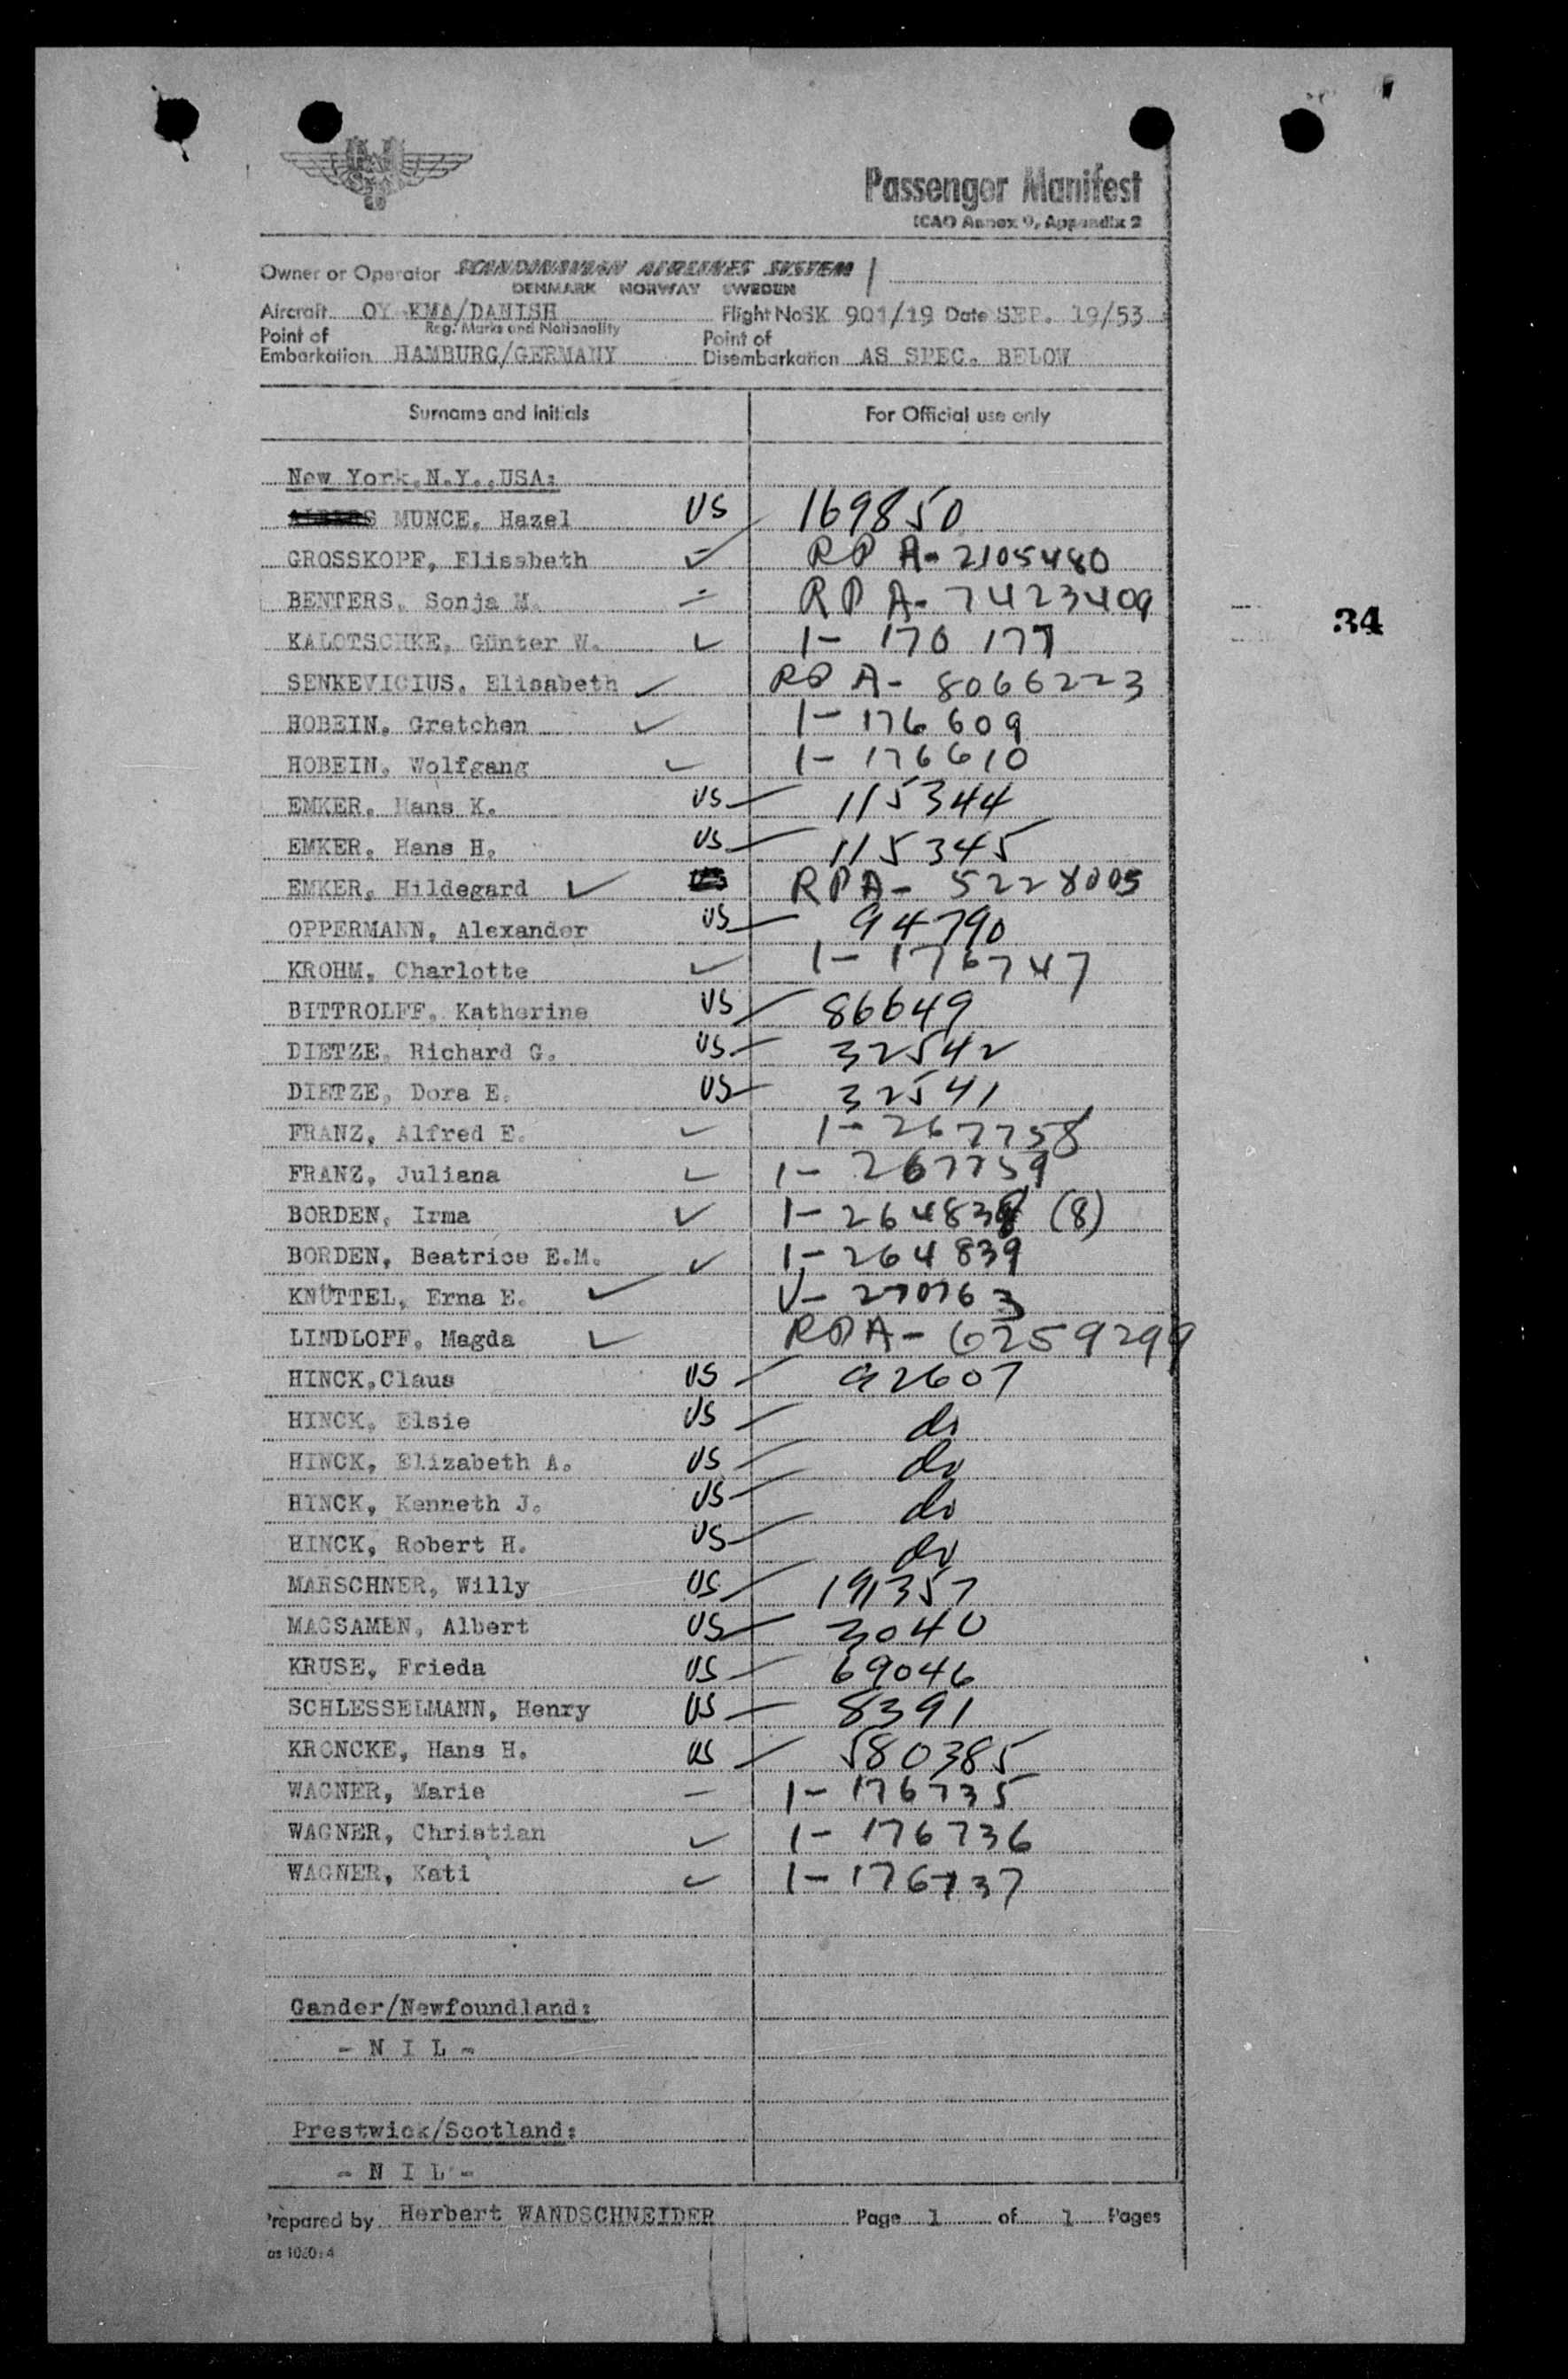 SAS
Passenger Manifest
ICAO Annex 9, Appendix 2
Owner or Operator SCANDINAVIAN AIRLINES SYSTEM
DENMARK NORWAY SWEDEN
Aircraft OY-KMA/DANISH Flight No SK 901/19 Date SEP. 19/53
Reg. Marks and Nationality
Point of Embarkation HAMBURG/GERMANY Point of Disembarkation AS SPEC. BELOW
Surname and initials For Official use only
New York, N.Y., USA:
MUNCE, Hazel US 169850
GROSSKOPF, Elisabeth RP A-2105480
BENTERS, Sonja M. RP A-7423409
KALOTSCHKE, Günter W. I-170177
SENKEVICIUS, Elisabeth RP A-8066223
HOBEIN, Gretchen I-176609
HOBEIN, Wolfgang I-176610
EMKER, Hans K. US 115344
EMKER, Hans H. US 115345
EMKER, Hildegard RPA-5228005
OPPERMANN, Alexander US 94790
KROHM, Charlotte I-176747
BITTROLFF, Katherine US 86649
DIETZE, Richard G. US 32542
DIETZE, Dora E. US 32541
FRANZ, Alfred E. I-267758
FRANZ, Juliana I-267759
BORDEN, Irma I-264838 (8)
BORDEN, Beatrice E.M. I-264839
KNÜTTEL, Erna E. V-270763
LINDLOFF, Magda RPA-6259299
HINCK, Claus US 92607
HINCK, Elsie US do
HINCK, Elizabeth A. US do
HINCK, Kenneth J. US do
HINCK, Robert H. US do
MARSCHNER, Willy US 191357
MAGSAMEN, Albert US 3040
KRUSE, Frieda US 69046
SCHLESSELMANN, Henry US 8391
KRONCKE, Hans H. US 580385
WAGNER, Marie I-176735
WAGNER, Christian I-176736
WAGNER, Kati I-176737
34
Gander/Newfoundland:
- N I L -
Prestwick/Scotland:
- N I L -
Prepared by Herbert WANDSCHNEIDER Page 1 of 1 Pages